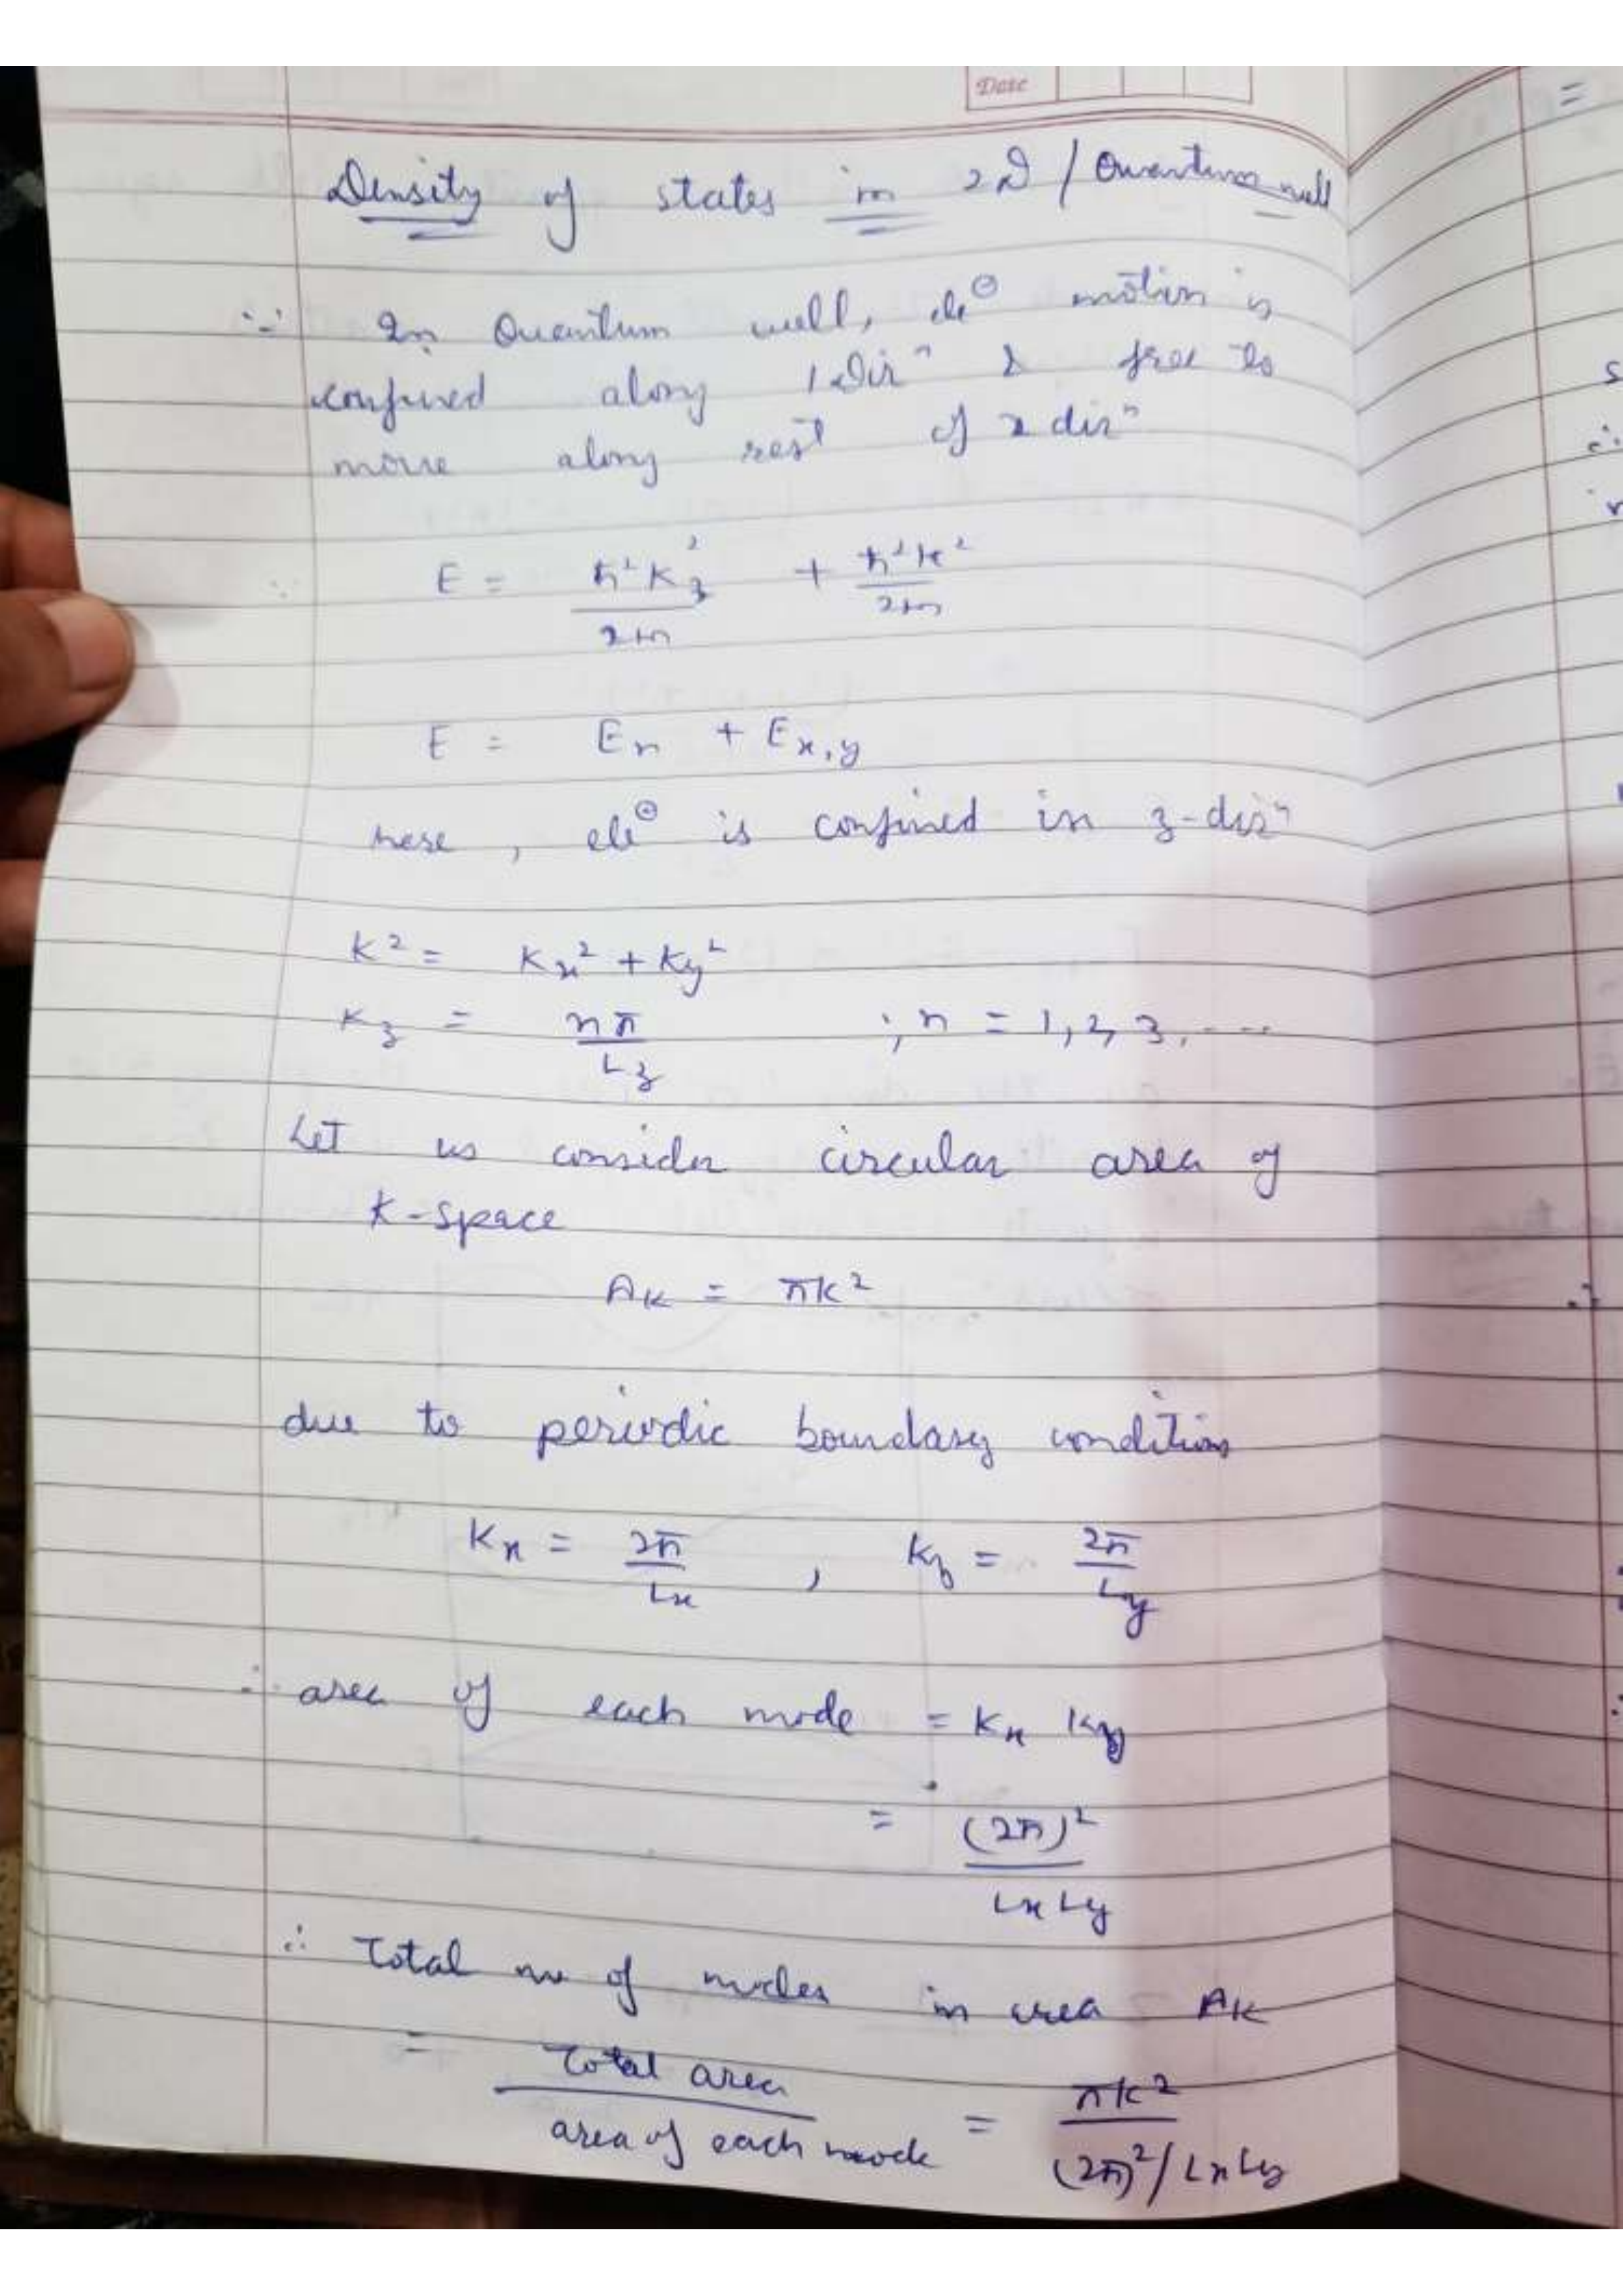 Date
Density of states in 2D / Quantum well
∵ In Quantum well, ele⊖ motion is
confined along 1 Dirⁿ & free to
move along rest of 2 dirⁿ
E = ħ²K_z²/2m + ħ²k²/2m
E = En + Ex,y
here, ele⊖ is confined in z-dirⁿ
K² = Kx² + Ky²
Kz = nπ/Lz ; n = 1, 2, 3, ....
Let us consider circular area of
K-space
AK = πk²
due to periodic boundary conditions
Kx = 2π/Lx , Ky = 2π/Ly
∴ area of each mode = Kx Ky
= (2π)²/Lx Ly
∴ Total no of modes in area AK
= Total area/area of each mode = πk²/(2π)²/Lx Ly